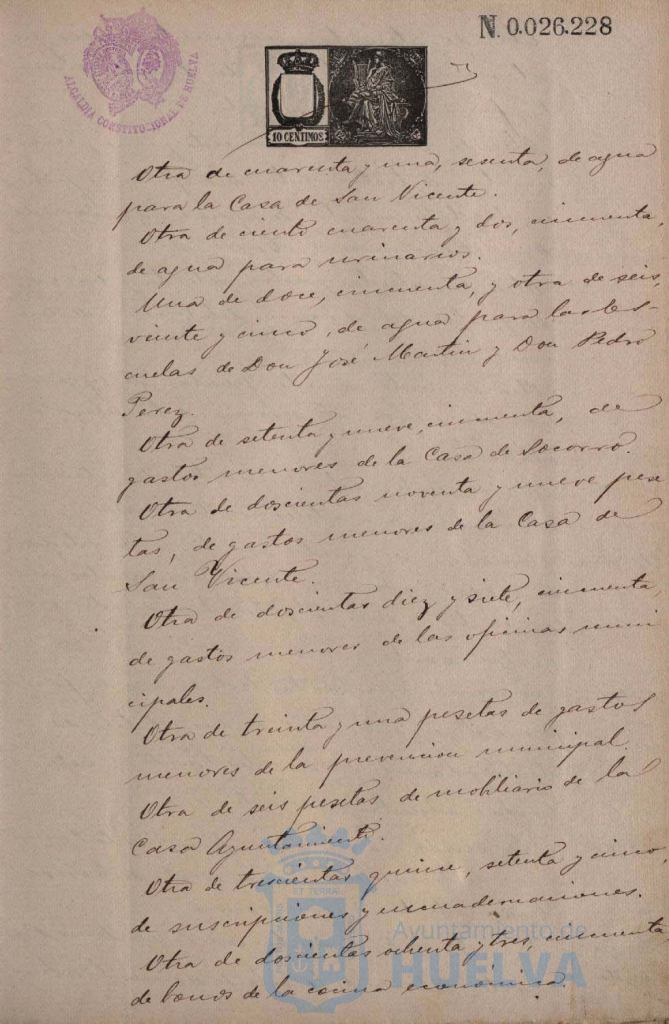 N. 0.026.228
ALCALDIA CONSTITUCIONAL DE HUELVA
10 CENTIMOS
Otra de cuarenta y una, sesenta, de agua
para la Casa de San Vicente.
Otra de ciento cuarenta y dos, cincuenta,
de agua para urinarios.
Una de doce, cincuenta, y otra de seis,
veinte y cinco, de agua para las Es-
cuelas de Don José Martin y Don Pedro
Perez.
Otra de setenta y nueve, cincuenta, de
gastos menores de la Casa de Socorro.
Otra de doscientas noventa y nueve pese
tas, de gastos menores de la Casa de
San Vicente.
Otra de doscientas diez y siete, cincuenta
de gastos menores de las oficinas muni
cipales.
Otra de treinta y una pesetas de gastos
menores de la prevencion municipal.
Otra de seis pesetas de mobiliario de la
Casa Ayuntamiento.
Otra de trescientas quince, setenta y cinco,
de suscripciones y encuadernaciones.
Otra de doscientas ochenta y tres, cincuenta
de bonos de la cocina económica.
Ayuntamiento de
HUELVA